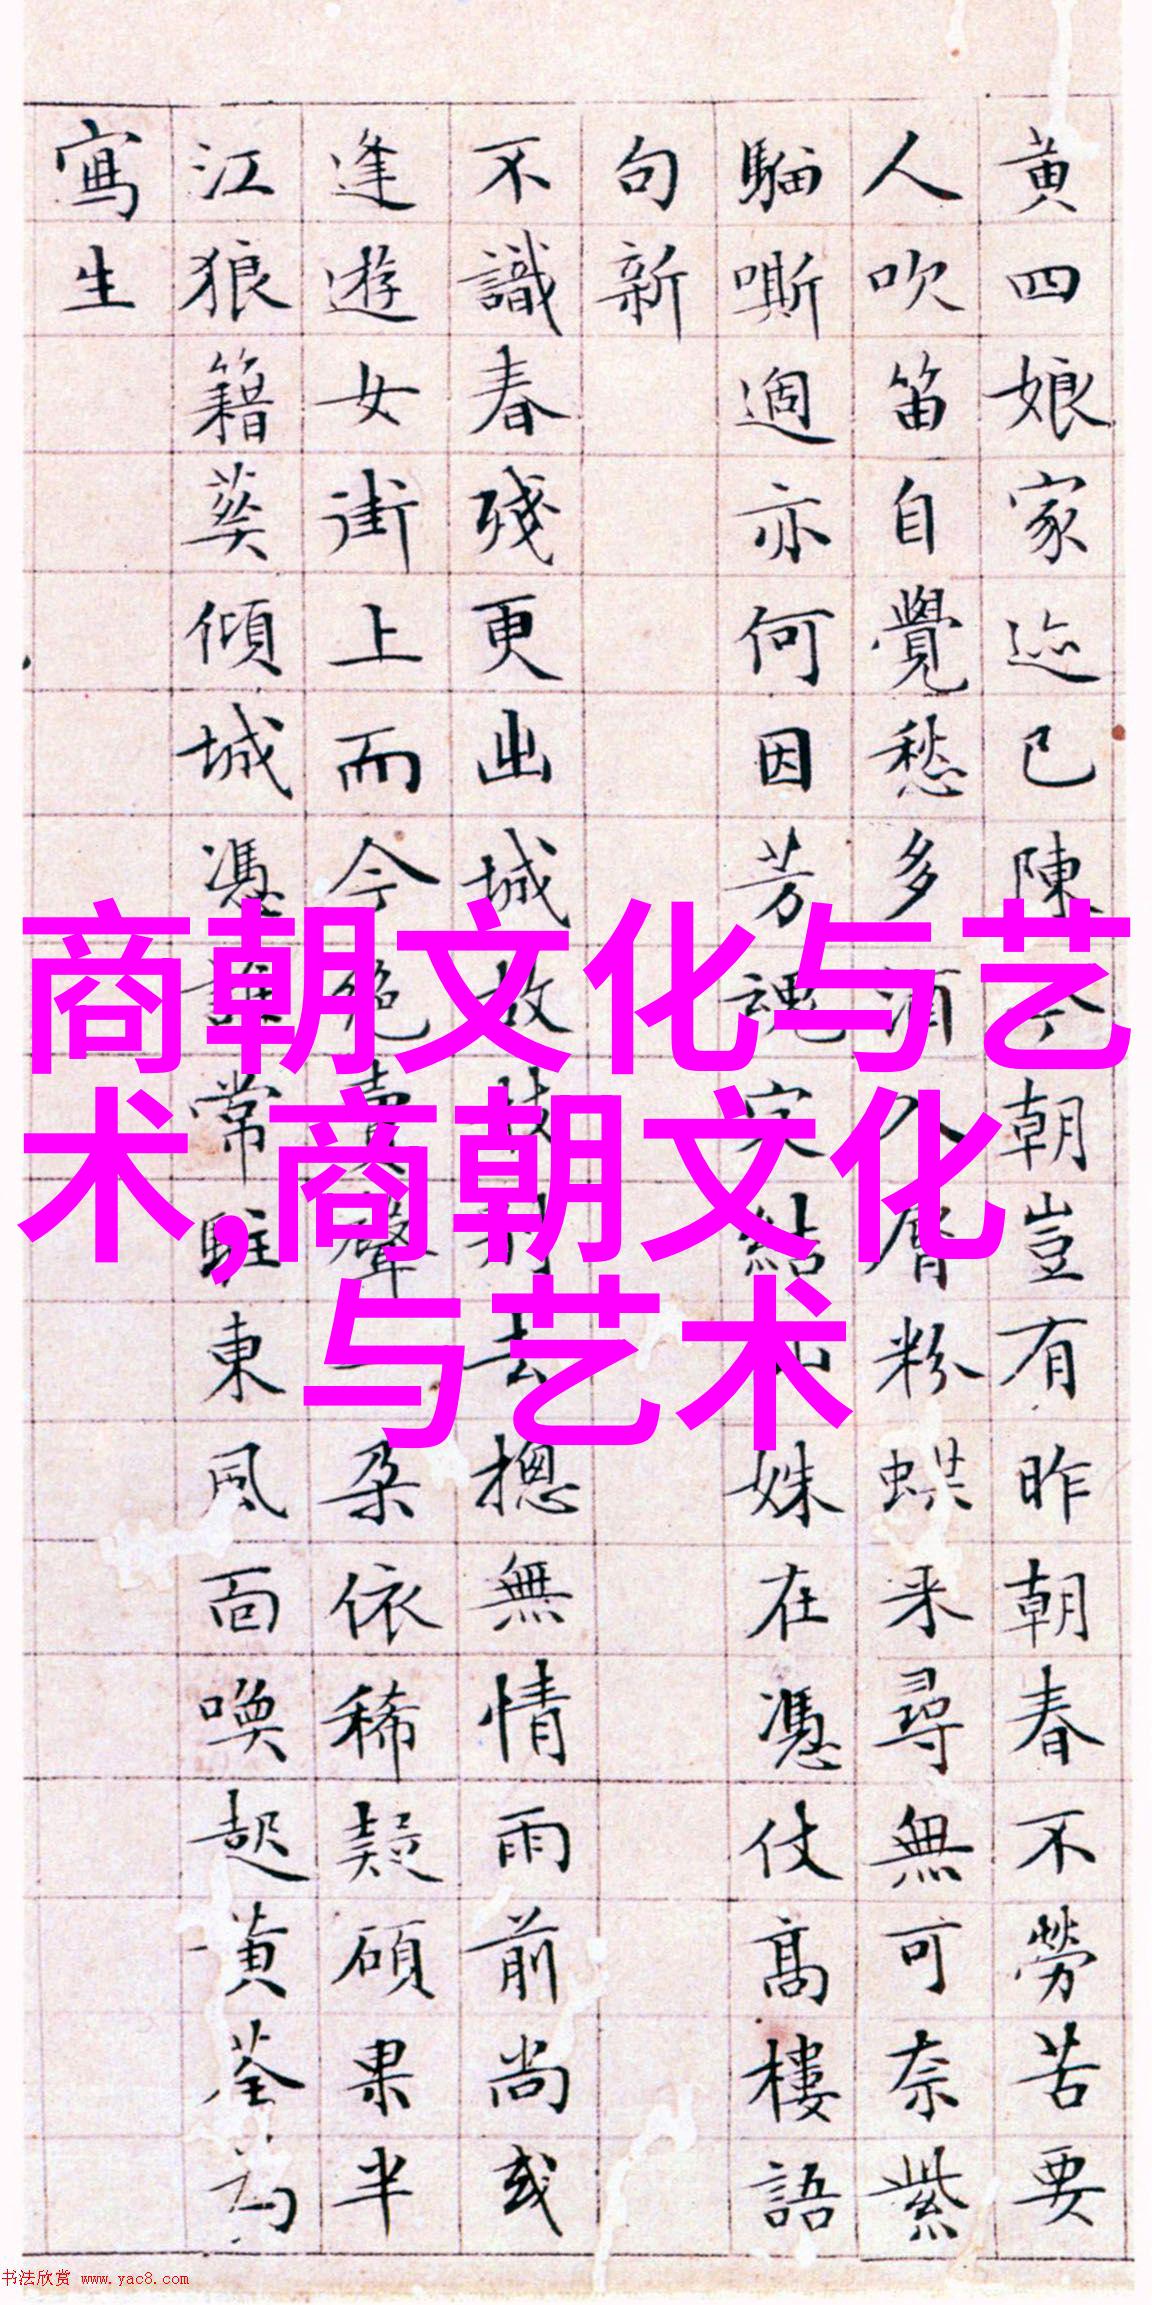 黄四娘家迹已陳今朝豈有昨朝春不勞苦要
人吹笛自覺愁多酒入脣粉蝶来尋無可奈紫
騮嘶過亦何因芳魂定結姝在憑仗高樓語
句新
不識春殘更出城故枝去摠無情雨前尚或
逢遊女街上而今絶賣聲一朵依稀疑碩果半
江狼籍葵傾城憑誰常駐東風面喚起黄荃為
寫生
商朝文化与艺
术,商朝文化
与艺术
书法欣赏 www.yac8.com